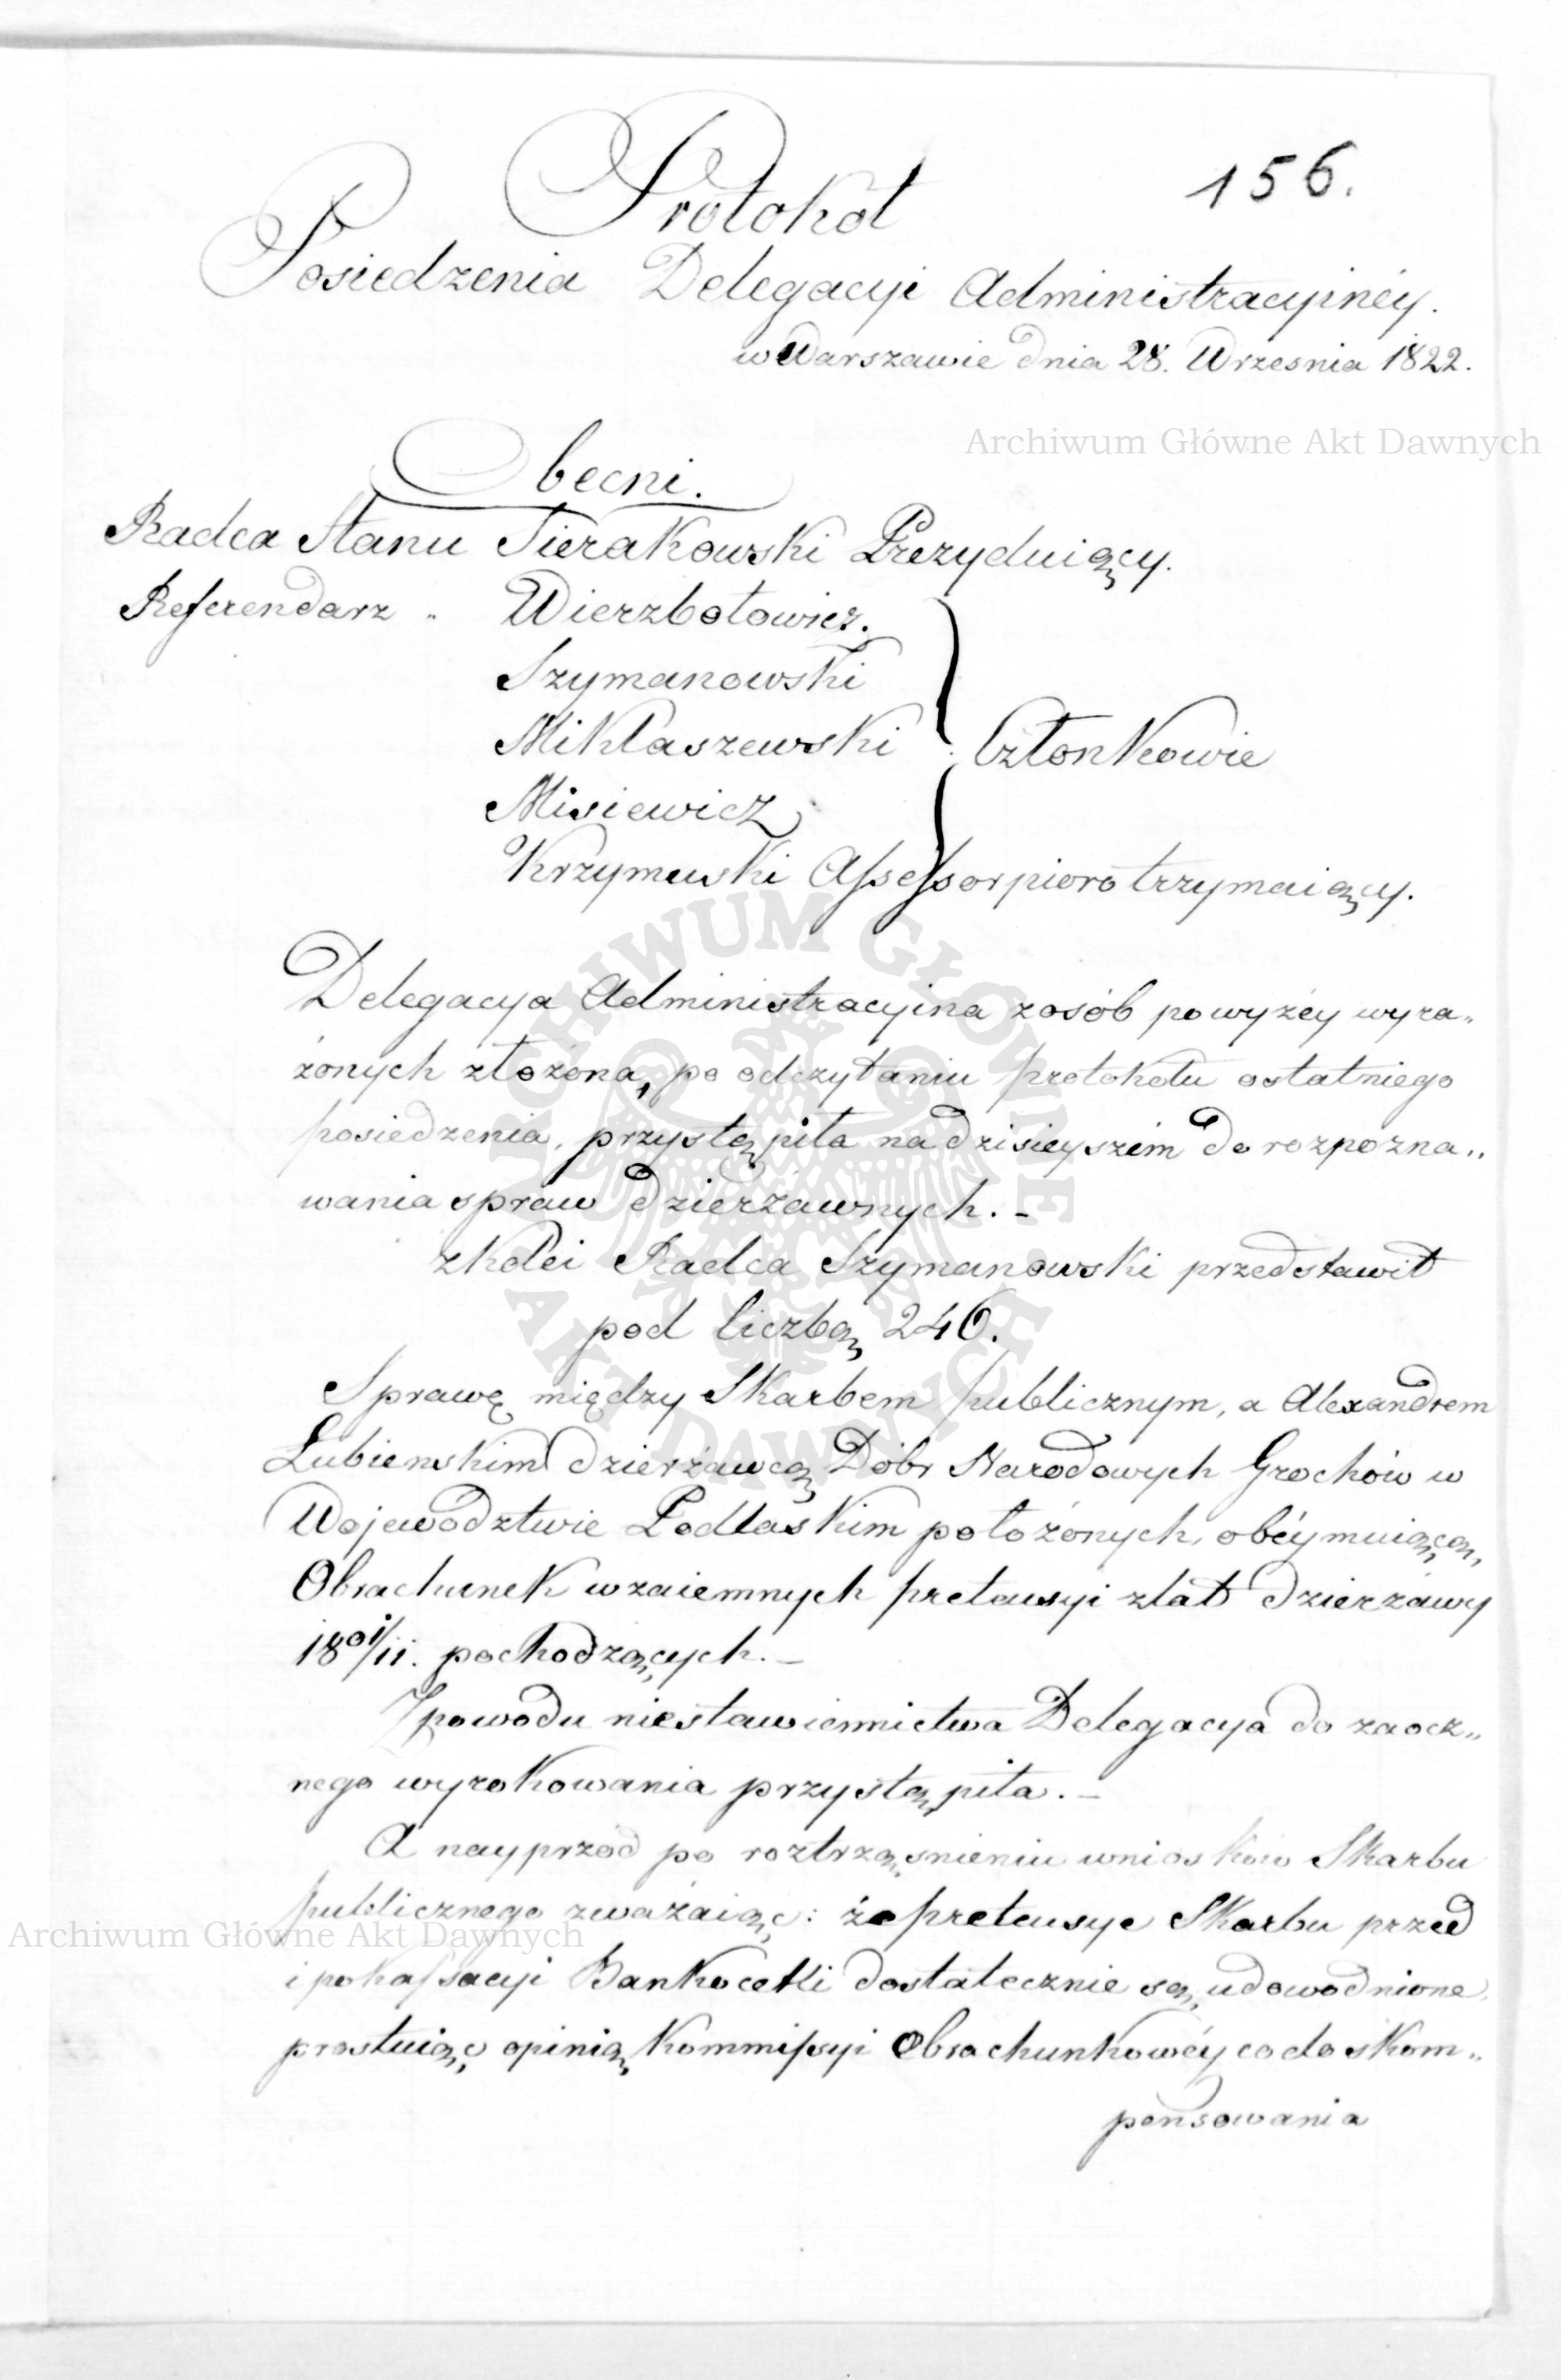 156.
Protokół
Posiedzenia Delegacyi Administracyinéy.
w Warszawie dnia 28. Wrzesnia 1822.
Archiwum Główne Akt Dawnych
Obecni.
Radca Stanu Sierakowski Prezyduiący.
Referendarz " Wierzbołowicz.
Szymanowski
Mikłaszewski Członkowie
Misiewicz
Krzymuski Assessor pioro trzymaiący.
Delegacya Administracyina z osób powyżéy wyra„
żonych złożona, po odczytaniu protokołu ostatniego
posiedzenia, przystąpiła na dzisieyszém do rozpozna„
wania spraw dzierżawnych. –
z kolei Radca Szymanowski przedstawił
pod liczbą 246.
Sprawę między Skarbem publicznym, a Alexandrem
Łubienskim dzierżawcą Dóbr Narodowych Grochów w
Województwie Podlaskim położonych, obéymuiącą,
Obrachunek wzaiemnych pretensyi z lat dzierżawy
1801/11. pochodzących. –
Z powodu niestawiennictwa Delegacya do zaocz„
nego wyrokowania przystąpiła. –
A nayprzód po roztrząsnieniu wniosków Skarbu
publicznego zważaiąc: że pretensye Skarbu przed
i po kassacyi Bankocetli dostatecznie są udowodnione,
prostuiąc opinią Kommissyi Obrachunkowéy co do skom„
pensowania
Archiwum Główne Akt Dawnych
ARCHIWUM GŁÓWNE AKT DAWNYCH